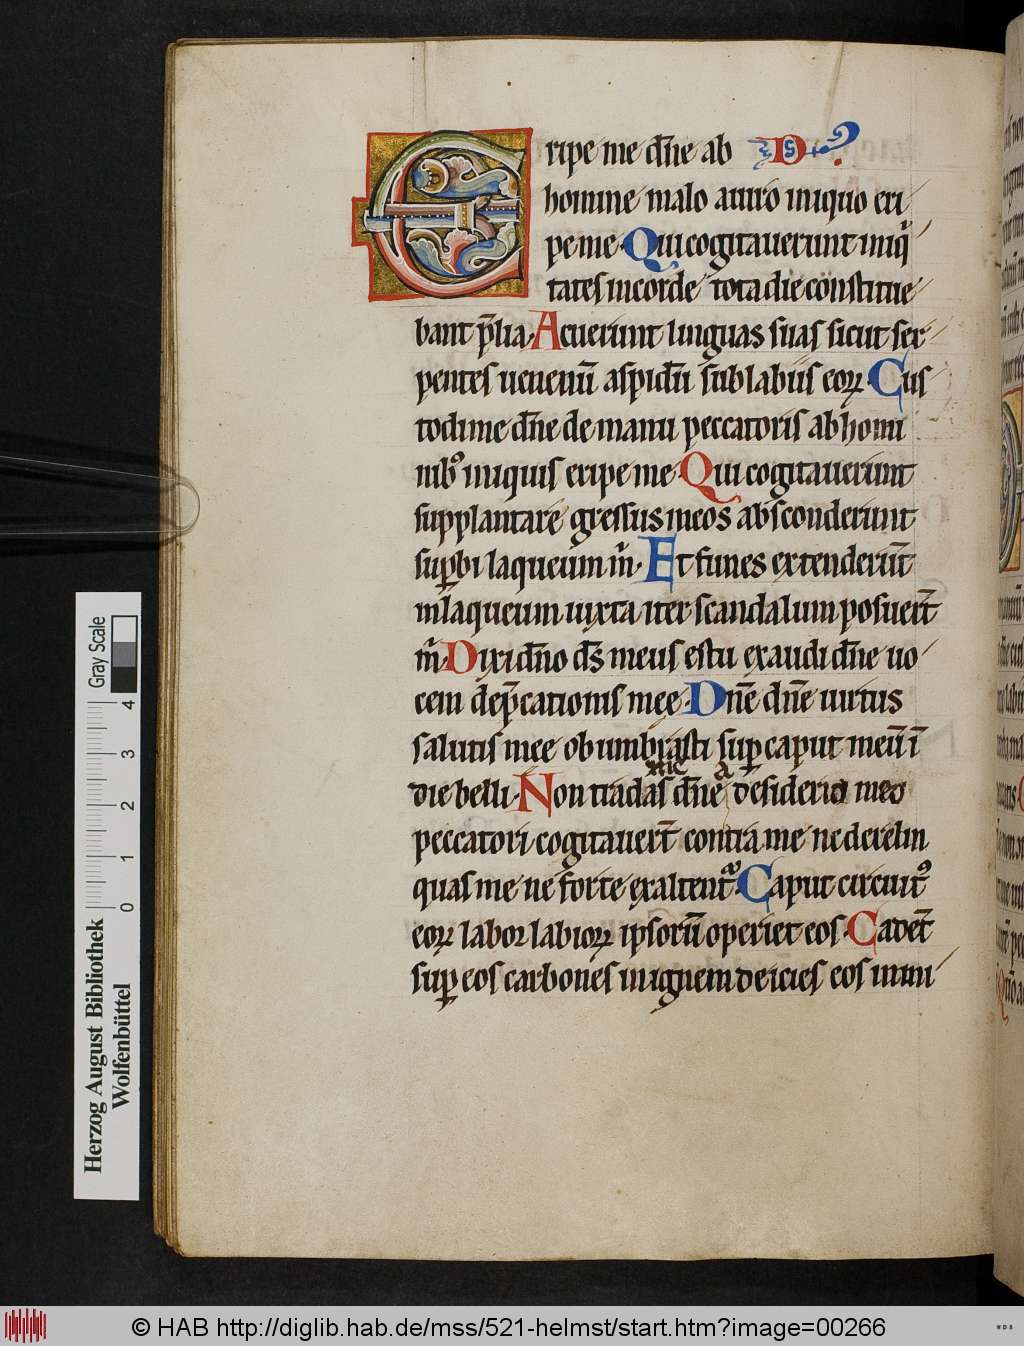 Eripe me dn̄e ab D
homine malo a uiro iniquo eri
pe me. Qui cogitauerunt iniq̄
tates in corde tota die constitue
bant p̄lia. Acuerunt linguas suas sicut ser
pentes uenenū aspidū sub labiis eoꝝ. Cus
todi me dn̄e de manu peccatoris ab homi
nibꝰ iniquis eripe me. Qui cogitauerunt
supplantare gressus meos absconderunt
suꝑbi laqueum m̄. Et funes extenderūt
in laqueum iuxta iter scandalum posuer̄t
m̄. Dixi dn̄o ds̄ meus es tu exaudi dn̄e uo
cem dep̄cationis mee. Dn̄e dn̄e uirtus
salutis mee obumbrasti suꝑ caput meū ī
die belli. Non tradas dn̄e a desiderio meo
peccatori cogitauer̄t contra me ne derelin
quas me ne forte exaltent᷑. Caput circuitꝰ
eoꝝ labor labioꝝ ipsorū operiet eos. Cadēt
suꝑ eos carbones in ignem deicies eos in mi
Herzog August Bibliothek
Wolfenbüttel
0 1 2 3 4
Gray Scale
© HAB http://diglib.hab.de/mss/521-helmst/start.htm?image=00266